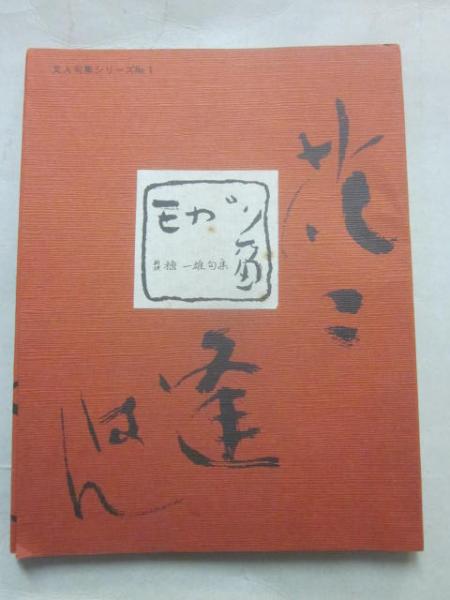 文人句集シリーズ№1
モガリ笛
檀一雄句集
花ニ
逢
はん